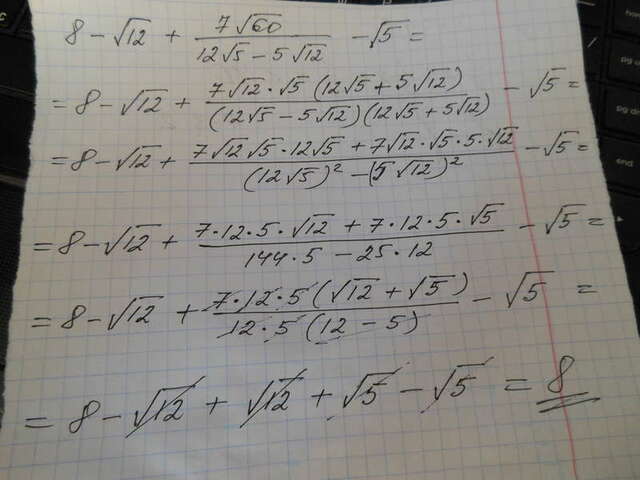 8 - √12 + 7√60 / (12√5 - 5√12) - √5 =
= 8 - √12 + 7√12 · √5 (12√5 + 5√12) / (12√5 - 5√12)(12√5 + 5√12) - √5 =
= 8 - √12 + (7√12 √5 · 12√5 + 7√12 · √5 · 5 · √12) / ((12√5)² - (5√12)²) - √5 =
= 8 - √12 + (7 · 12 · 5 · √12 + 7 · 12 · 5 · √5) / (144 · 5 - 25 · 12) - √5 =
= 8 - √12 + 7 · 12 · 5 (√12 + √5) / 12 · 5 (12 - 5) - √5 =
= 8 - √12 + √12 + √5 - √5 = 8